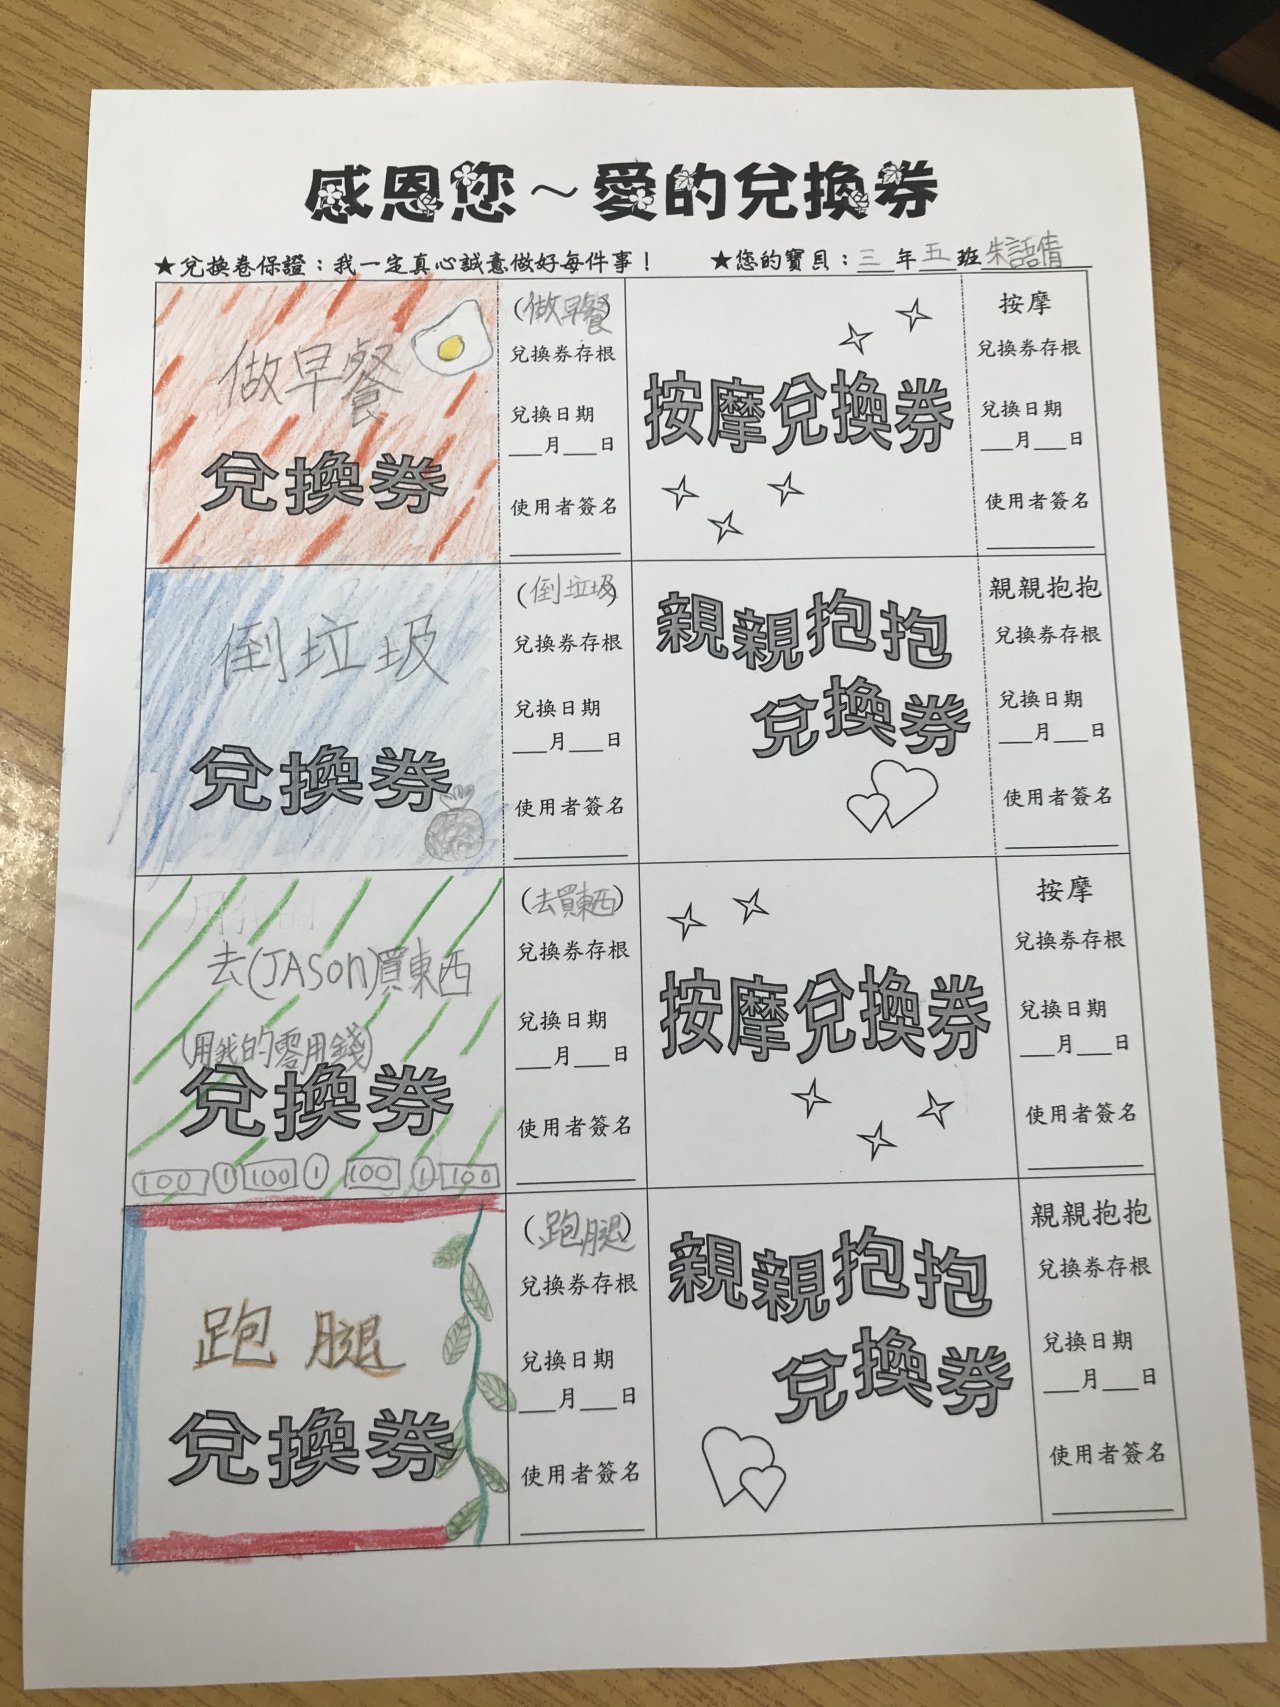 感恩您～愛的兌換券
★兌換卷保證：我一定真心誠意做好每件事！ ★您的寶貝：三年五班朱語倩
做早餐
兌換券
(做早餐)
兌換券存根
兌換日期
___月___日
使用者簽名
按摩兌換券
按摩
兌換券存根
兌換日期
___月___日
使用者簽名
倒垃圾
兌換券
(倒垃圾)
兌換券存根
兌換日期
___月___日
使用者簽名
親親抱抱
兌換券
親親抱抱
兌換券存根
兌換日期
___月___日
使用者簽名
去(JASon)買東西
(用我的零用錢)
兌換券
100 1 100 1 100 1 100
(去買東西)
兌換券存根
兌換日期
___月___日
使用者簽名
按摩兌換券
按摩
兌換券存根
兌換日期
___月___日
使用者簽名
跑腿
兌換券
(跑腿)
兌換券存根
兌換日期
___月___日
使用者簽名
親親抱抱
兌換券
親親抱抱
兌換券存根
兌換日期
___月___日
使用者簽名